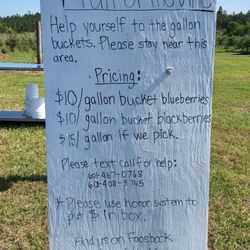 Help yourself to the gallon
buckets. Please stay near this
area.
Pricing:
$10/gallon bucket blueberries
$10/gallon bucket blackberries
$15/gallon if we pick.
Please text call for help:
601-467-0768
601-408-3745
* Please, use honor system to
put $ in box.
Find us on Facebook